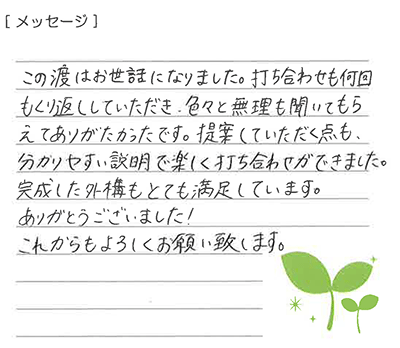 [メッセージ]
この渡はお世話になりました。打ち合わせも何回
もくり返ししていただき、色々と無理も聞いてもら
えてありがたかったです。提案していただく点も、
分かりやすい説明で楽しく打ち合わせができました。
完成した外構もとても満足しています。
ありがとうございました!
これからもよろしくお願い致します。